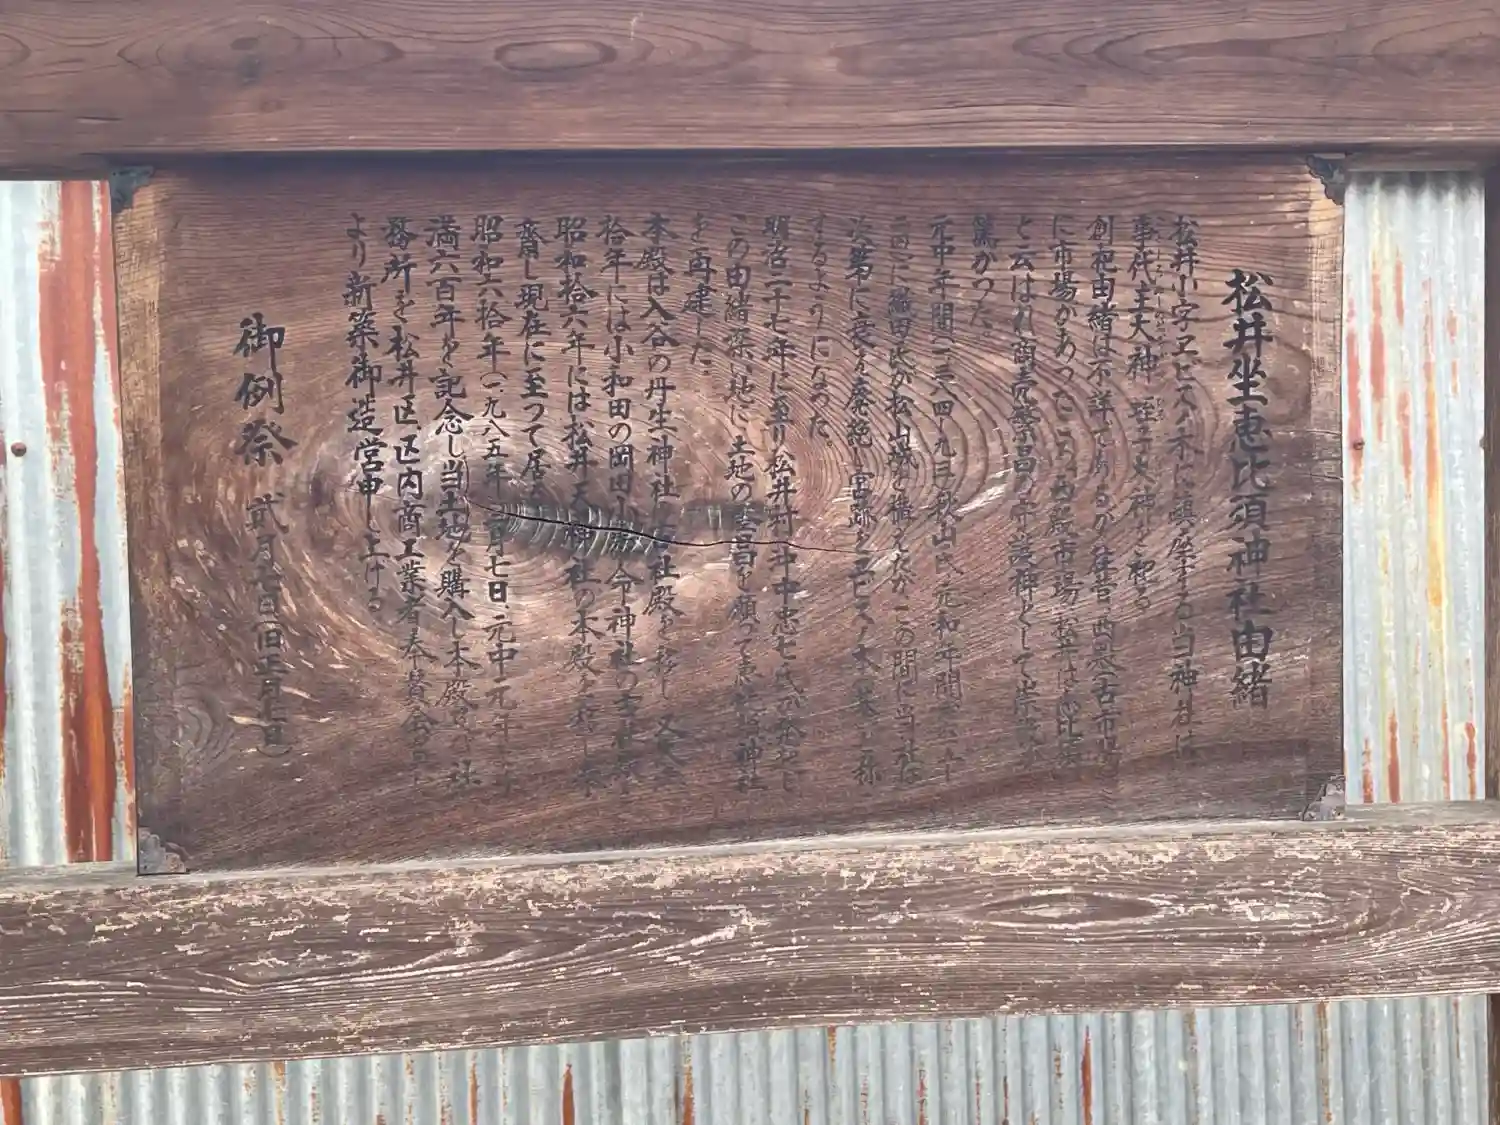 松井坐恵比須神社由緒
松井小字ヱヒスノ木に鎮座する当神社は
事代主大神 蛭子大神を祀る
創祀由緒は不詳であるが往昔、西殿(古市場
に市場があったころ西殿市場、松井は恵比須
と云はれ商売繁昌の守護神として崇
篤かつた
元中年間(一三八四〜九三)秋山氏、元和年間
に織田氏が松山城を構えたが この間に当
次第に衰え廃絶し 宮跡をヱビスノ木 と称
するようになつた
明治二十七年に至り松井村 中忠七氏が
この由緒深い地に 土地の繁昌を願つて恵比須神社
を再建した
本殿は入谷の丹生神社 社殿を移し 又
拾年には小和田の岡田小 命神社の
昭和拾六年には松井天神社の本殿を移し
斎し現在に至つて居る
昭和六拾年(一九八五年 月七日、元中元年
満六百年を記念し当土地を購入し本殿 社
務所を松井区区内商工業者奉賛会
より新築御造営申し上げる
御例祭 貳月七日(旧正月七日)